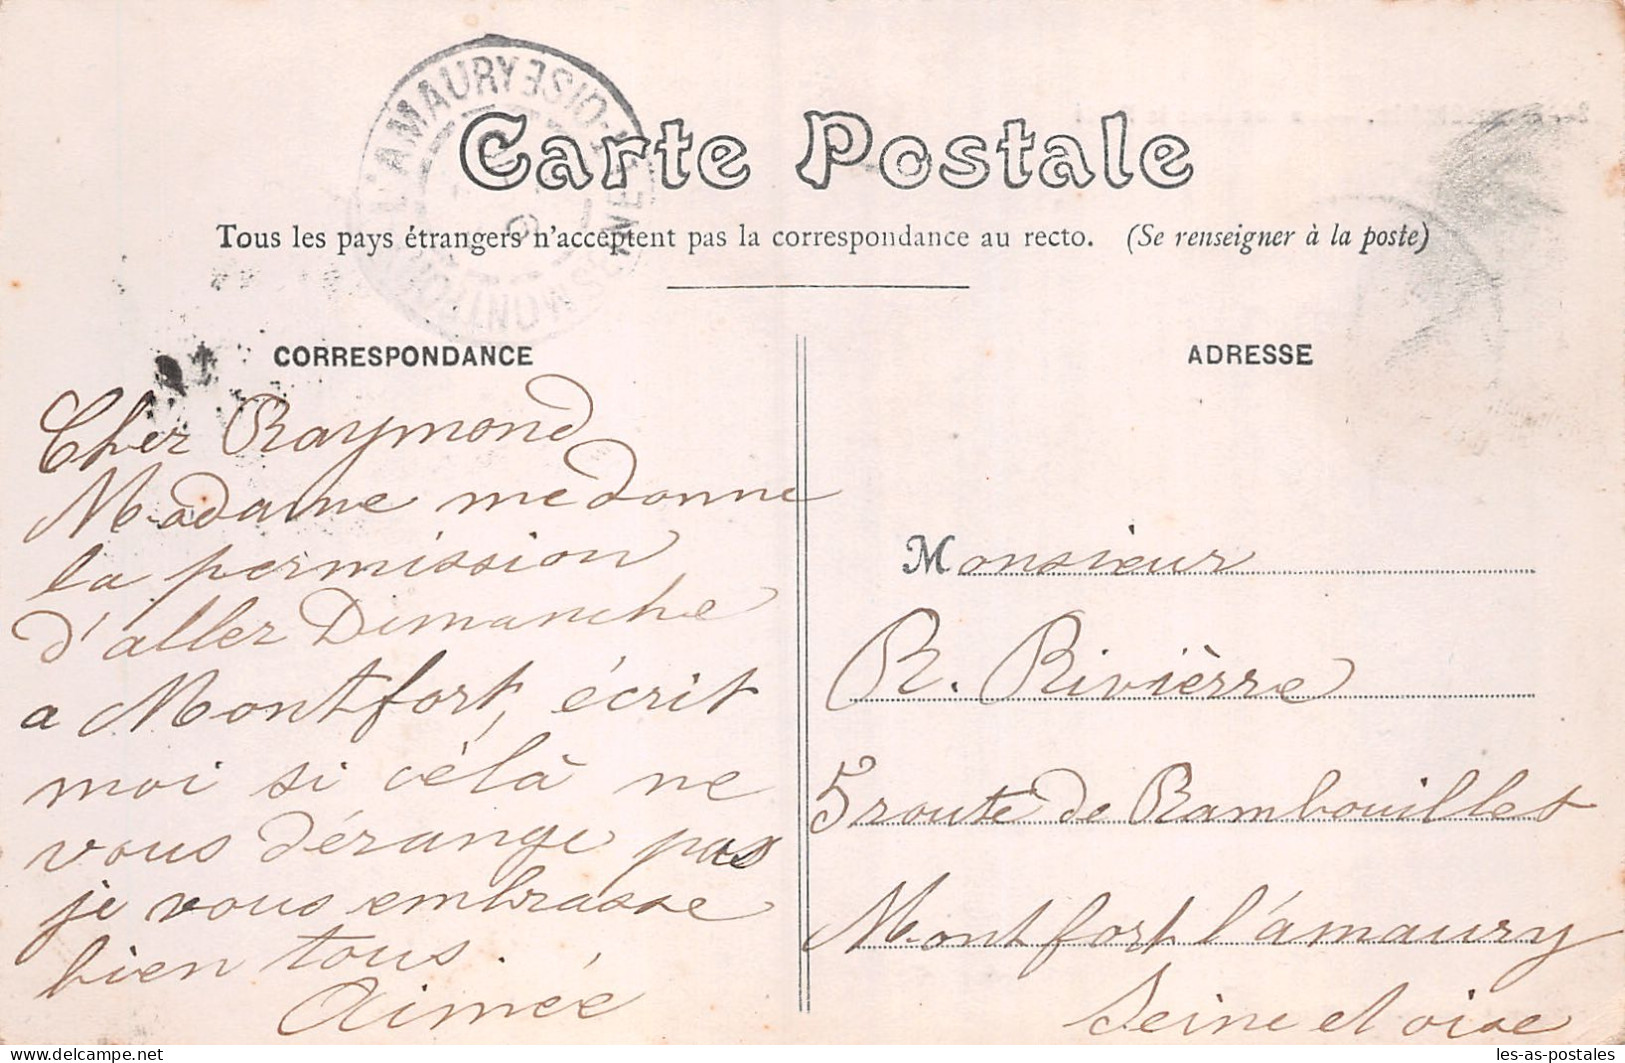 L'AMAURY SEINE-ET-OISE MONTFORT
Carte Postale
Tous les pays étrangers n'acceptent pas la correspondance au recto. (Se renseigner à la poste)
CORRESPONDANCE
Cher Raymond
Madame me donne
la permission
d'aller Dimanche
a Montfort, écrit
moi si célà ne
vous dérange pas
je vous embrasse
bien tous.
Aimée
ADRESSE
Monsieur
R. Rivièrre
5 route de Rambouillet
Montfort l'amaury
Seine et oise
les-as-postales
delcampe.net